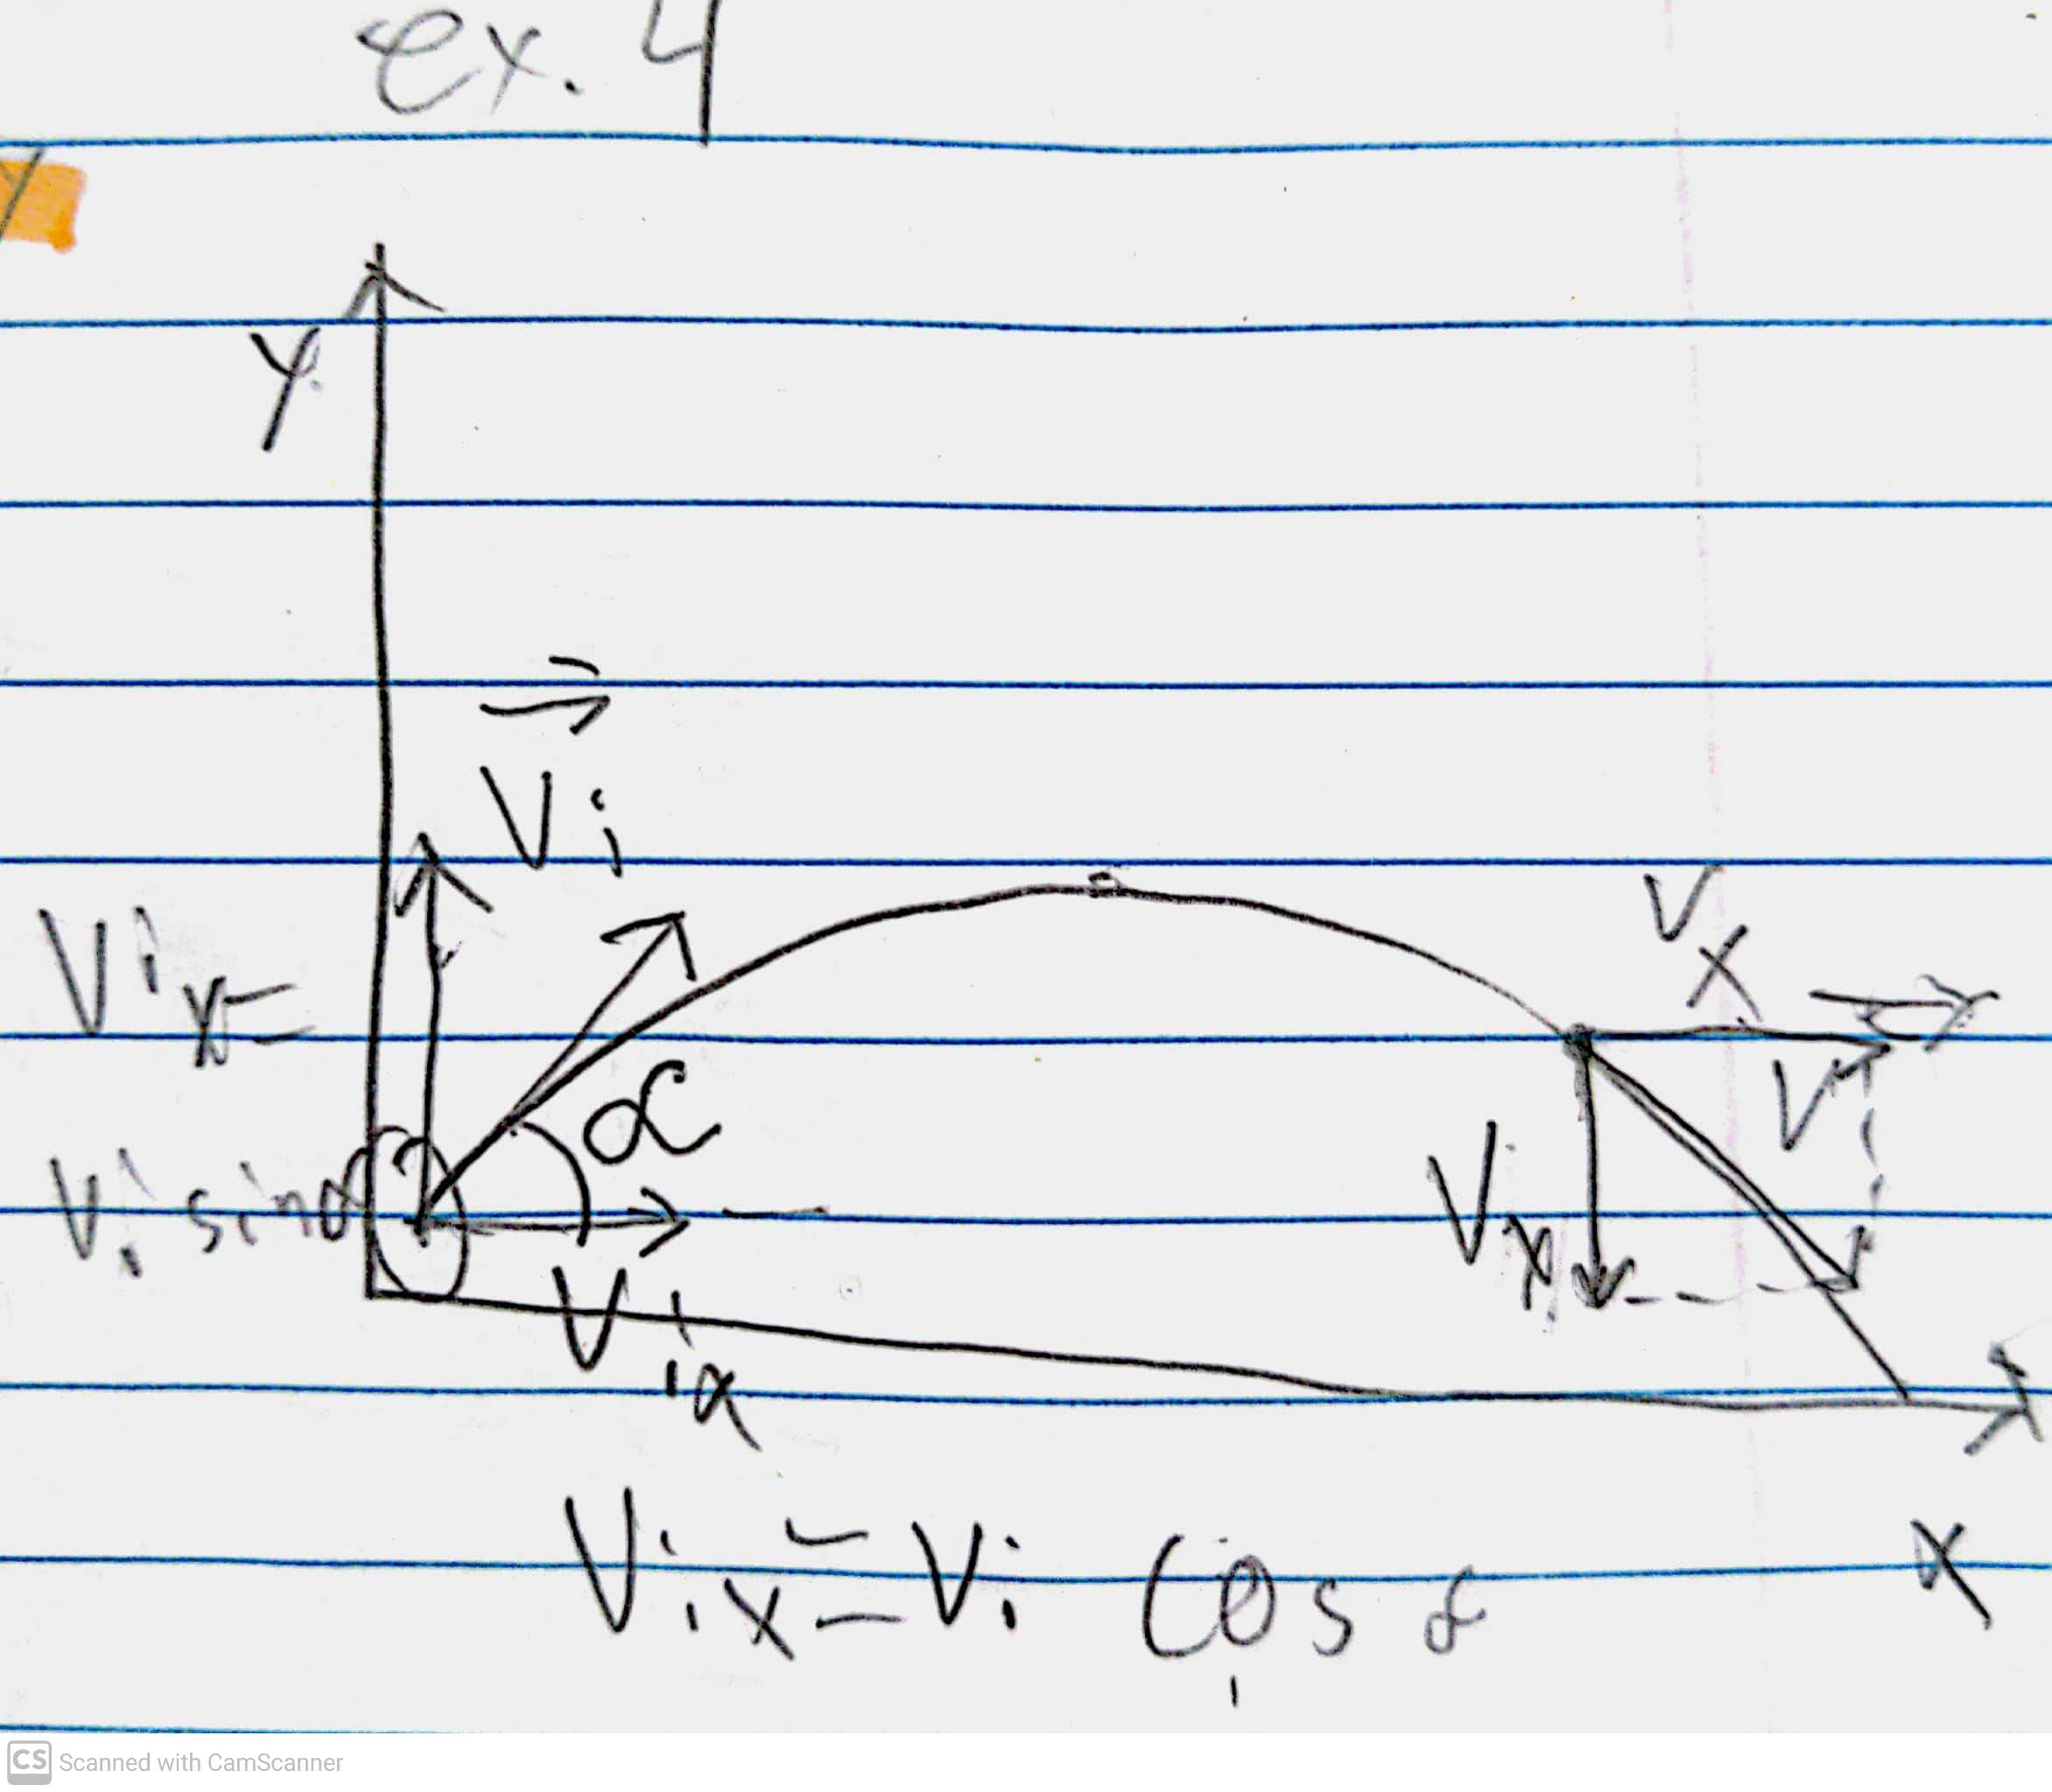 ex. 4
y
Vi
Vix=
Vi sinα
α
Viα
Vx
V
Vx
x
Vix = Vi cos α
CS Scanned with CamScanner